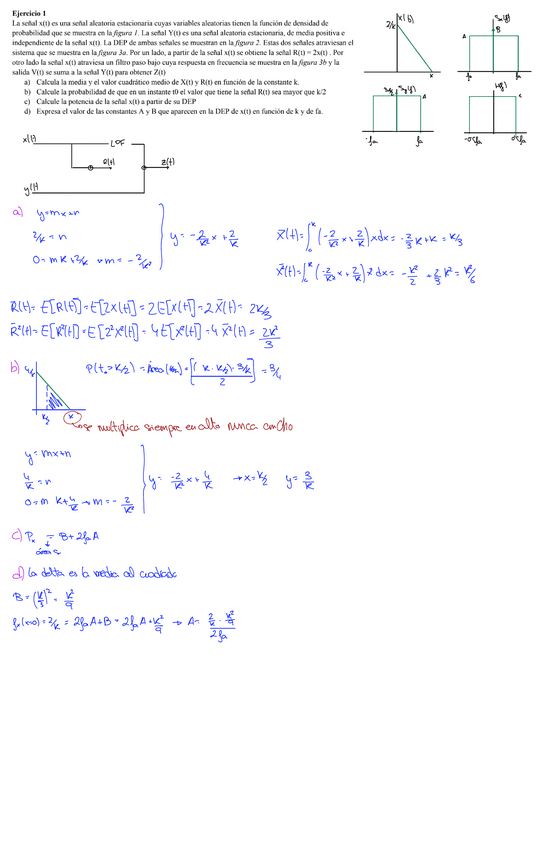 Ejercicio 1
La señal x(t) es una señal aleatoria estacionaria cuyas variables aleatorias tienen la función de densidad de
probabilidad que se muestra en la figura 1. La señal Y(t) es una señal aleatoria estacionaria, de media positiva e
independiente de la señal x(t). La DEP de ambas señales se muestran en la figura 2. Estas dos señales atraviesan el
sistema que se muestra en la figura 3a. Por un lado, a partir de la señal x(t) se obtiene la señal R(t) = 2x(t) . Por
otro lado la señal x(t) atraviesa un filtro paso bajo cuya respuesta en frecuencia se muestra en la figura 3b y la
salida V(t) se suma a la señal Y(t) para obtener Z(t)
a) Calcula la media y el valor cuadrático medio de X(t) y R(t) en función de la constante k.
b) Calcule la probabilidad de que en un instante t0 el valor que tiene la señal R(t) sea mayor que k/2
c) Calcule la potencia de la señal x(t) a partir de su DEP
d) Expresa el valor de las constantes A y B que aparecen en la DEP de x(t) en función de k y de fa.
2/k
x
B
A
fa
A
-fa
fa
x(t)
R(t)
z(t)
y(t)
a) y=mx+n
2/k = n
0 = mk + 2/k → m = -2/k²
y = -2/k² x + 2/k
x̄(t) = ∫₀ᵏ (-2/k² x + 2/k) x dx = -2/3 k + k = k/3
x̄²(t) = ∫₀ᵏ (-2/k² x + 2/k) x² dx = -k²/2 + 2/3 k² = k²/6
R̄(t) = E[R(t)] = E[2x(t)] = 2E[x(t)] = 2x̄(t) = 2k/3
R̄²(t) = E[R²(t)] = E[2²x²(t)] = 4E[x²(t)] = 4 x̄²(t) = 2k²/3
b)
k/2
k
se multiplica siempre en alto nunca ancho
y = mx+n
4/k = n
0 = m k + 4/k → m = -2/k²
y = -2/k² x + 4/k → x = k/2 y = 3/k
c) Pₓ = B + 2fa A
d) la delta es la media al cuadrado
B = (k/3)² = k²/9
fx(x=0) = 2/k = 2fa A + B = 2fa A + k²/9